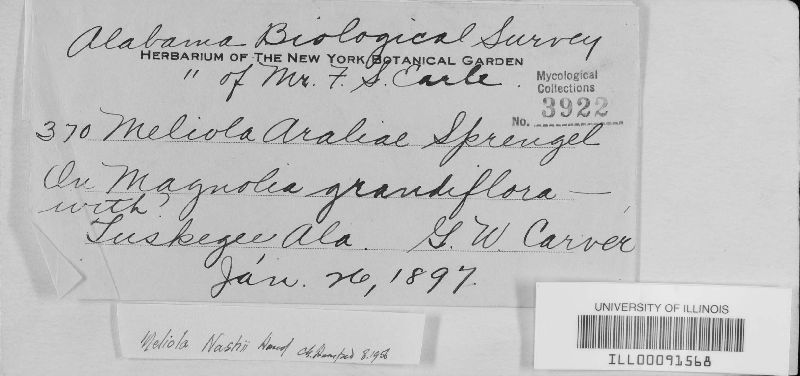 Alabama Biological Survey
HERBARIUM OF THE NEW YORK BOTANICAL GARDEN
" of Mr. F. S. Earle.
Mycological
Collections
No. 3922
370 Meliola Araliae Sprengel
On Magnolia grandiflora —
with?
Tuskegee Ala. G. W. Carver
Jan. 26, 1897.
Meliola Nashii 8.1956
UNIVERSITY OF ILLINOIS
ILL00091568